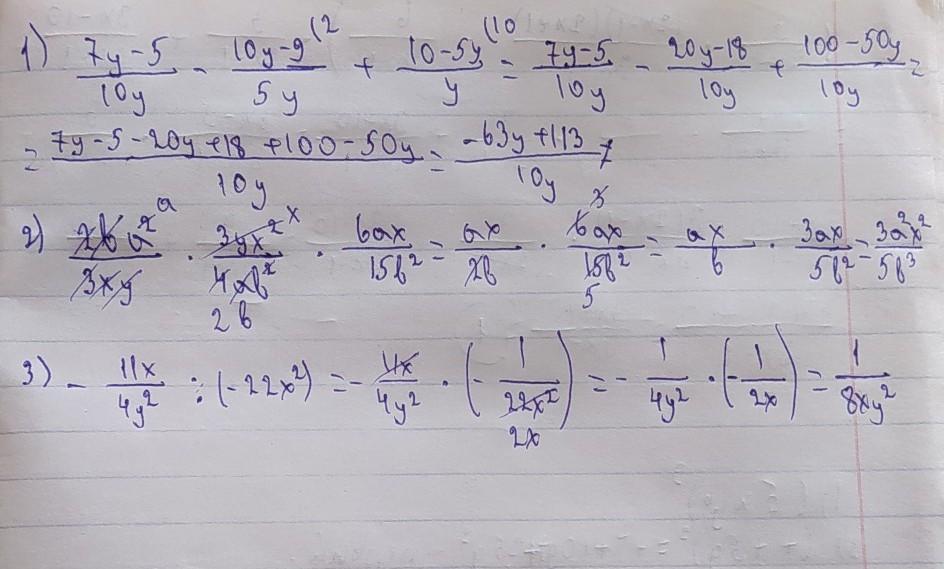 1) \frac{7y-5}{10y} - \frac{10y-9}{5y}^{(2} + \frac{10-5y}{y}^{(10} = \frac{7y-5}{10y} - \frac{20y-18}{10y} + \frac{100-50y}{10y} =
= \frac{7y-5-20y+18+100-50y}{10y} = \frac{-63y+113}{10y};
2) \frac{2ba^2}{3xy} \cdot \frac{3yx^2}{4ab^2} \cdot \frac{6ax}{15b^2} = \frac{ax}{2b} \cdot \frac{6ax}{15b^2} = \frac{ax}{b} \cdot \frac{3ax}{5b^2} = \frac{3a^2x^2}{5b^3}
3) -\frac{11x}{4y^2} : (-22x^2) = -\frac{11x}{4y^2} \cdot \left(-\frac{1}{22x^2}\right) = -\frac{1}{4y^2} \cdot \left(-\frac{1}{2x}\right) = \frac{1}{8xy^2}